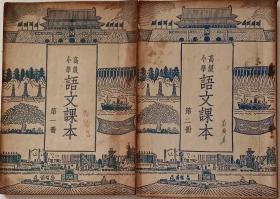 高級
小學
語文課本
第一冊
高級
小學
語文課本
第二冊